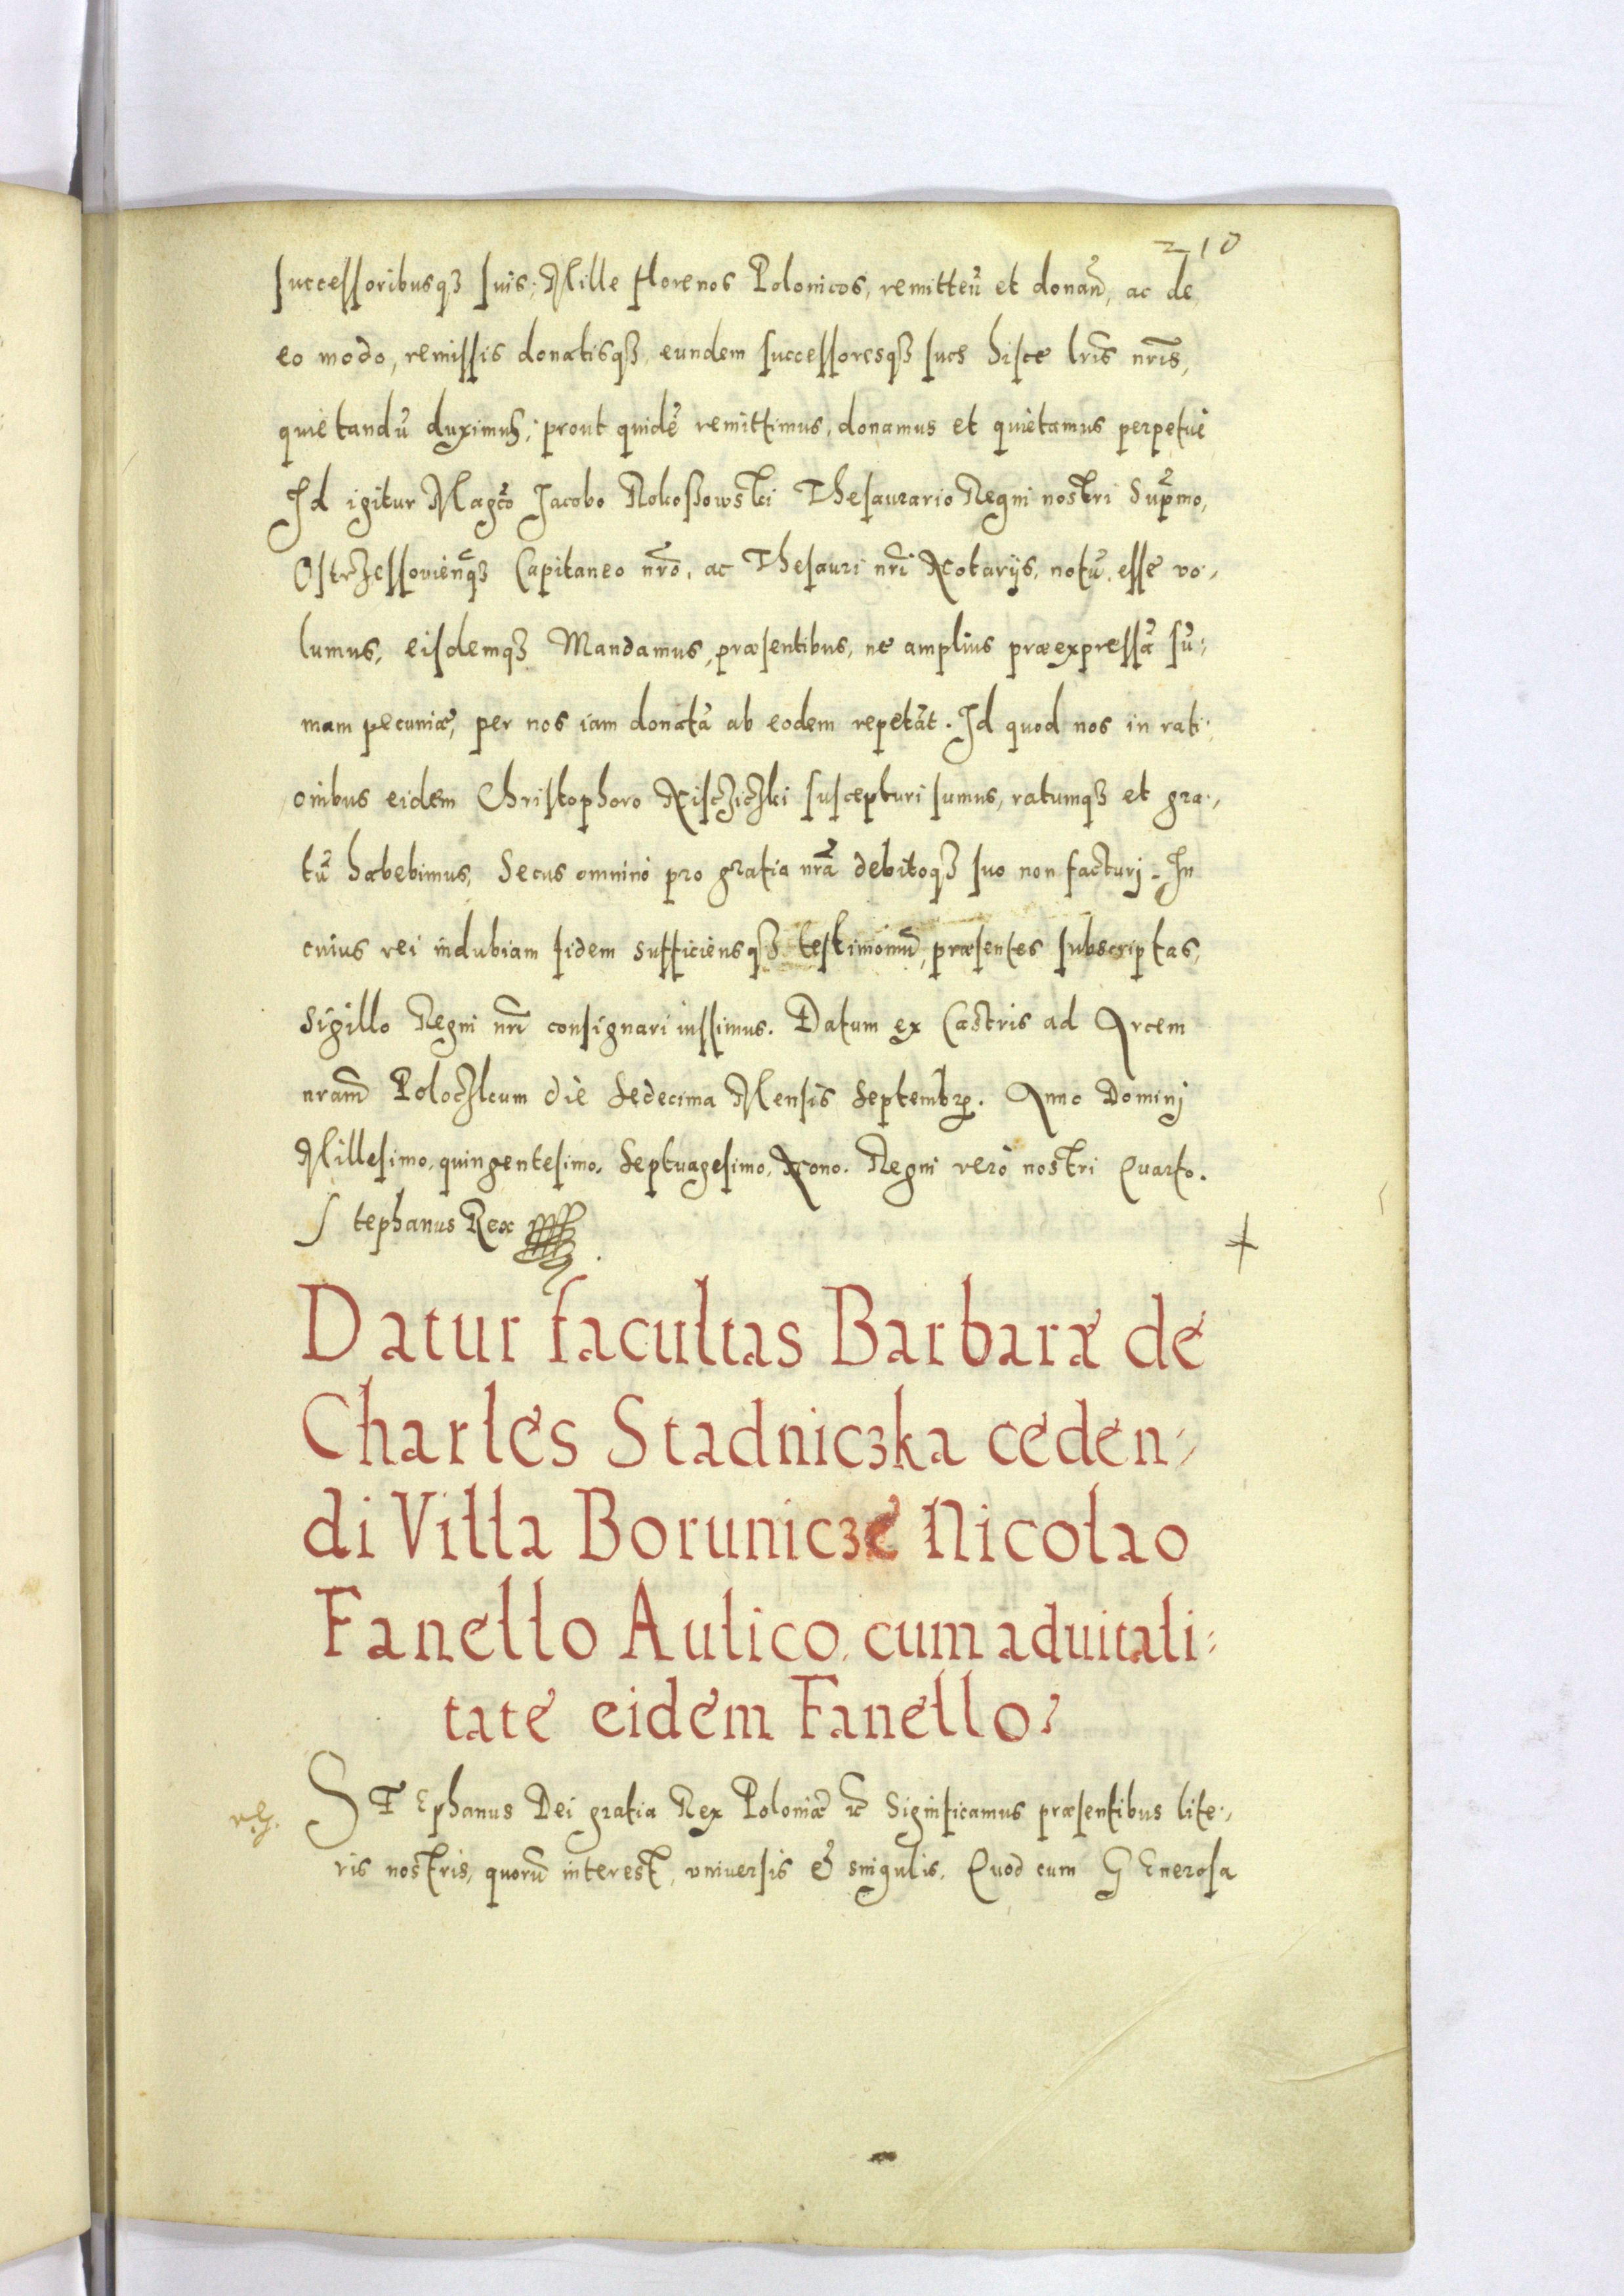 210
successoribusqʒ suis, Mille florenos Polonicos, remitteñ et donañ, ac de
eo modo, remissis donatisqʒ, eundem successoresqʒ suos hisce lr̃is nr̃is,
quietandũ duximus, prout quidẽ remittimus, donamus et quietamus perpetuè
Id igitur Mag̃co Jacobo Rokossowski Thesaurario Regni nostri Sup̃mo,
Ostrzessovieñqʒ Capitaneo nr̃o, ac Thesauri nr̃i Notarijs, notũ esse vo-
lumus, eisdemqʒ Mandamus, præsentibus, ne amplius præexpressã sũ-
mam pecuniæ, per nos iam donatã ab eodem repetãt. Id quod nos in rati-
onibus eidem Christophoro Nisczιczki suscepturi sumus, ratumqʒ et gra-
tũ habebimus, Secus omnino pro gratia nr̃a debitoqʒ suo non facturj. In
cuius rei indubiam fidem sufficiensqʒ testimoniũ, præsentes subscriptas,
Sigillo Regni nr̃i consignari iussimus. Datum ex Castris ad Arcem
nram̃ Poloczkum die Sedecima Mensis Septembr. Anno Dominj
Millesimo, quingentesimo, Septuagesimo, Nono. Regni verò nostri Quarto.
Stephanus Rex
Datur facultas Barbaræ de
Charles Stadniczka ceden-
di Villa Borunicze Nicolao
Fanello Aulico, cum aduitali-
tate eidem Fanello
STEphanus Dei gratia Rex Poloniæ ꝛc Significamus præsentibus lite-
ris nostris, quorũ interest, vniuersis & singulis. Quod cum GEnerosa